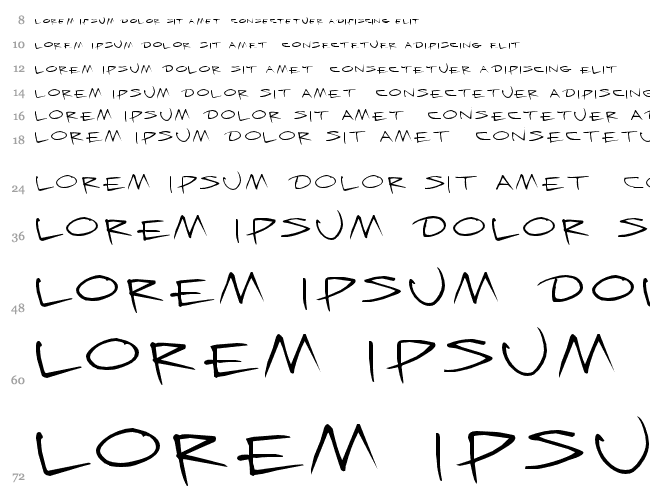 8 LOREM IPSUM DOLOR SIT AMET CONSECTETUER ADIPISCING ELIT
10 LOREM IPSUM DOLOR SIT AMET CONSECTETUER ADIPISCING ELIT
12 LOREM IPSUM DOLOR SIT AMET CONSECTETUER ADIPISCING ELIT
14 LOREM IPSUM DOLOR SIT AMET CONSECTETUER ADIPISCING
16 LOREM IPSUM DOLOR SIT AMET CONSECTETUER AD
18 LOREM IPSUM DOLOR SIT AMET CONSECTETU
24 LOREM IPSUM DOLOR SIT AMET CO
36 LOREM IPSUM DOLOR S
48 LOREM IPSUM DOL
60 LOREM IPSUM
72 LOREM IPSU